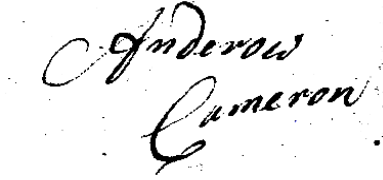 Anderow
Cameron